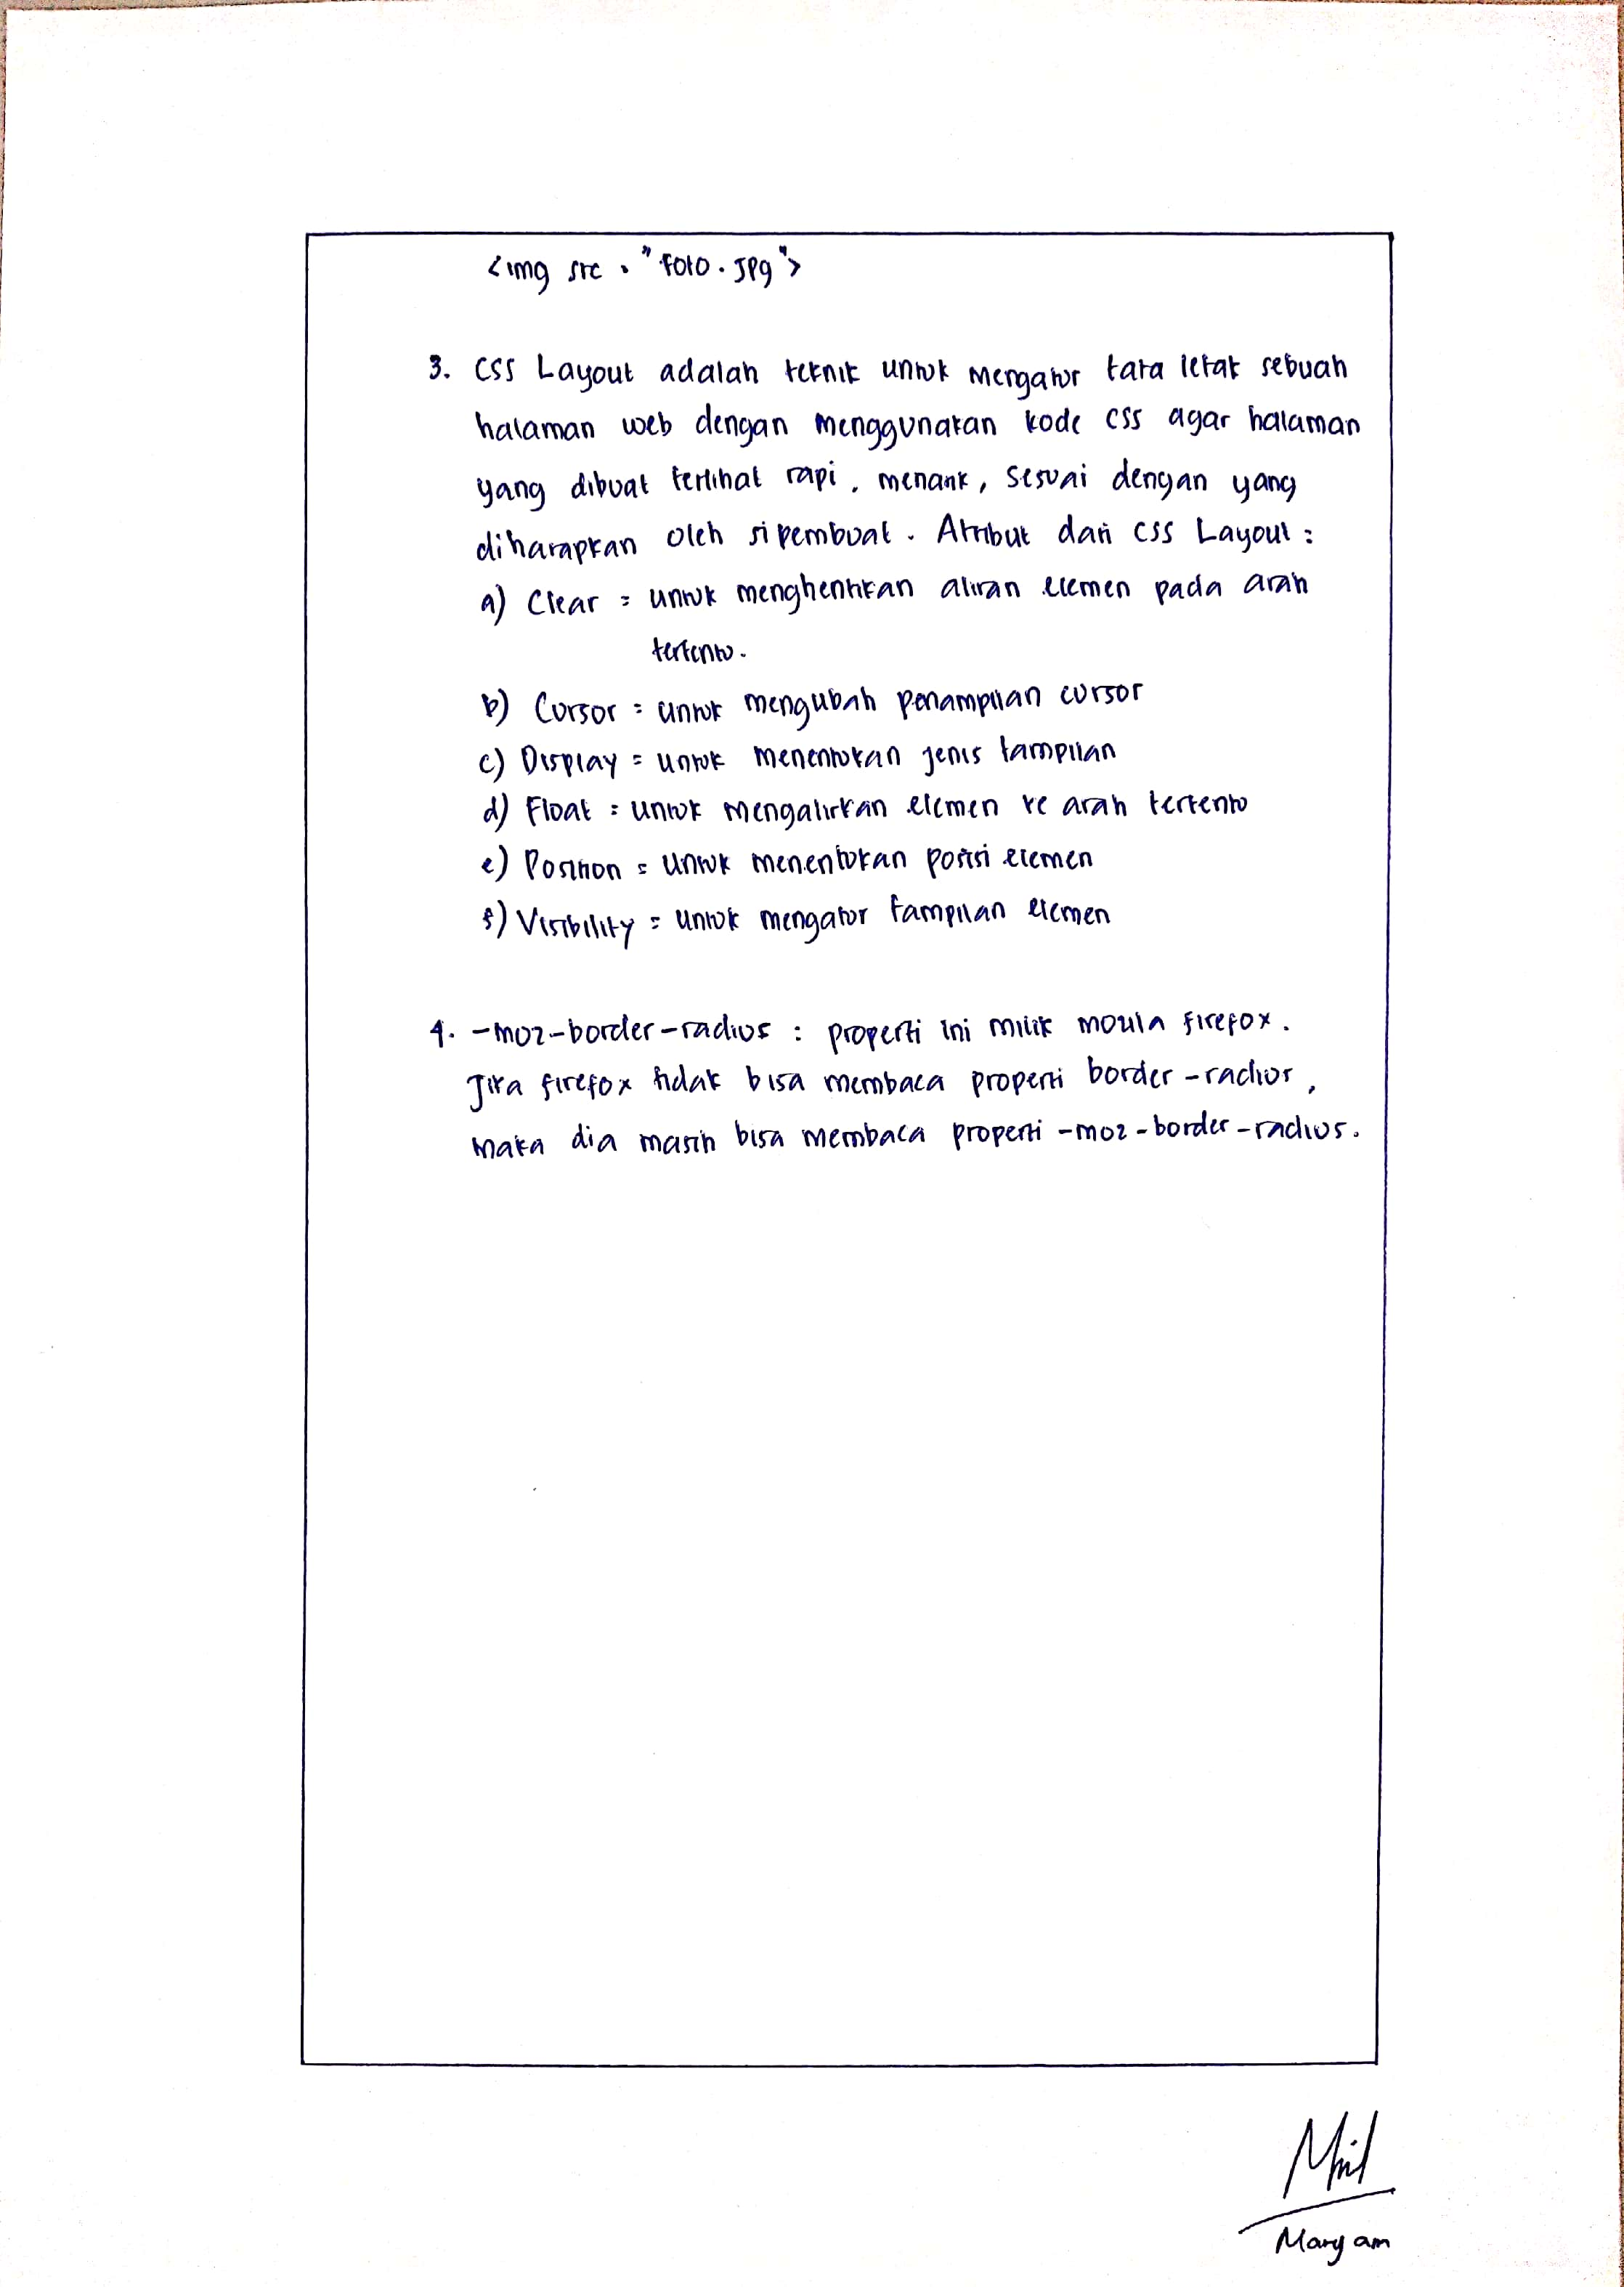 <img src = "foto.jpg">
3. CSS Layout adalah teknik untuk mengatur tata letak sebuah
halaman web dengan menggunakan kode css agar halaman
yang dibuat terlihat rapi, menarik, sesuai dengan yang
diharapkan oleh sipembuat. Atribut dari CSS Layout :
a) Clear = untuk menghentikan aliran elemen pada arah
tertentu.
b) Cursor = untuk mengubah penampilan cursor
c) Display = untuk menentukan jenis tampilan
d) Float = untuk mengalirkan elemen ke arah tertentu
e) Position = untuk menentukan posisi elemen
f) Visibility = untuk mengatur tampilan elemen
4. -moz-border-radius : properti ini milik mozila firefox.
Jika firefox tidak bisa membaca properti border-radius,
maka dia masih bisa membaca properti -moz-border-radius.
Maryam